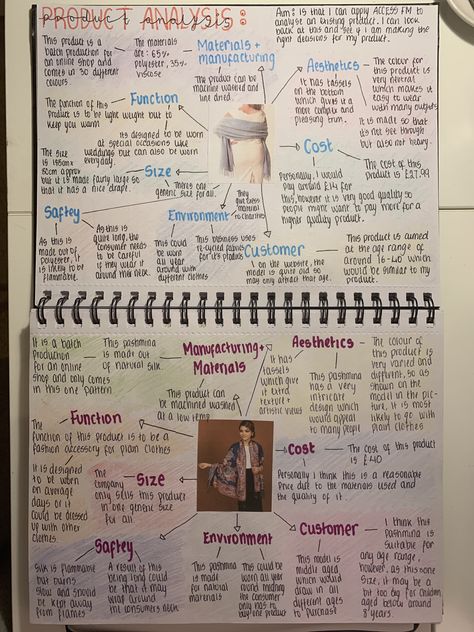 PRODUCT ANALYSIS:
product analysis
Aim: is that I can apply ACCESS FM to
analyse an existing product. I can look
back at this and see if I am making the
right decisions for my product.
This product is a
batch production for
an online shop and
comes in 30 different
colours
The materials
are: 65%
polyester, 35%
viscose
Materials +
manufacturing
The product can be
machine washed and
line dried.
Aesthetics
It has tassels
on the bottom
which gives it a
more complex and
pleasing trim.
The colour for
this product is
very neutral
which makes it
easy to wear
with many outfits
It is made so that
it's not see through
but also not heavy.
Function
The function of this
product is to be light weight but to
keep you warm
Its designed to be worn
at special occasions like
weddings but can also be worn
everyday.
Cost
The cost of this
product is
£27.99
Personally, I would
pay around £14 for
this, however it is very good quality so
people might want to pay more for a
higher quality product.
Size
The size
is 195cm x
80cm approx
but it is made fairly large so
that it has a nice drape.
There's one
generic size for all.
Saftey
As this is
made out of
polyester, it
is likely to be
flammable.
As this is
quite long, the
consumer needs
to be careful
if they wear it
around this neck.
Environment
This could
be worn
all year
around with
different clothes
This business uses
recycled fabrics
for it's products
They
give
material
to charities
Customer
I on the website, the
model is quite old so
may only attract that age.
This product is aimed
at the age range of
around 16-40 which
would be similar to my
product.
It is a batch
production
for an online
shop and only comes
in this one pattern
This pashmina
is made out
of natural silk.
Manufacturing +
Materials
This product can
be machined washed
at a low temp
Aesthetics
It has
tassels which
give it text
texture +
artistic views
This pashmina
has a very
intricate
design which
would appeal
to many people
The colour of
this product is
very varied and
different, so as
shown on the
model in the pic-
ture, it is most
likely to go with
plain clothes
Function
The
function of this product is to be a
fashion accessory for plain clothes
It is designed
to be worn
on average
days or it
could be dressed
up with other
clothes.
Size
The
company
only sells this product
in one generic size
for all.
Cost
The cost of this product
is £40
Personally I think this is a reasonable
price due to the materials used and
the quality of it.
Saftey
Silk is flammable
but burns
slow and should
be kept away
from flames
A result of this
being long could
be that it may
wrap around
the consumers neck.
Environment
This pashmina
is made
for natural
materials
This could be
worn all year
round meaning
the consumer
only has to
buy one product
Customer
This model is
aged which
would draw in
all different
ages to
purchase
I think this
pashmina is
suitable for
any age range,
however, as this one
size, it may be a
bit too big for children
aged below around
8 years.